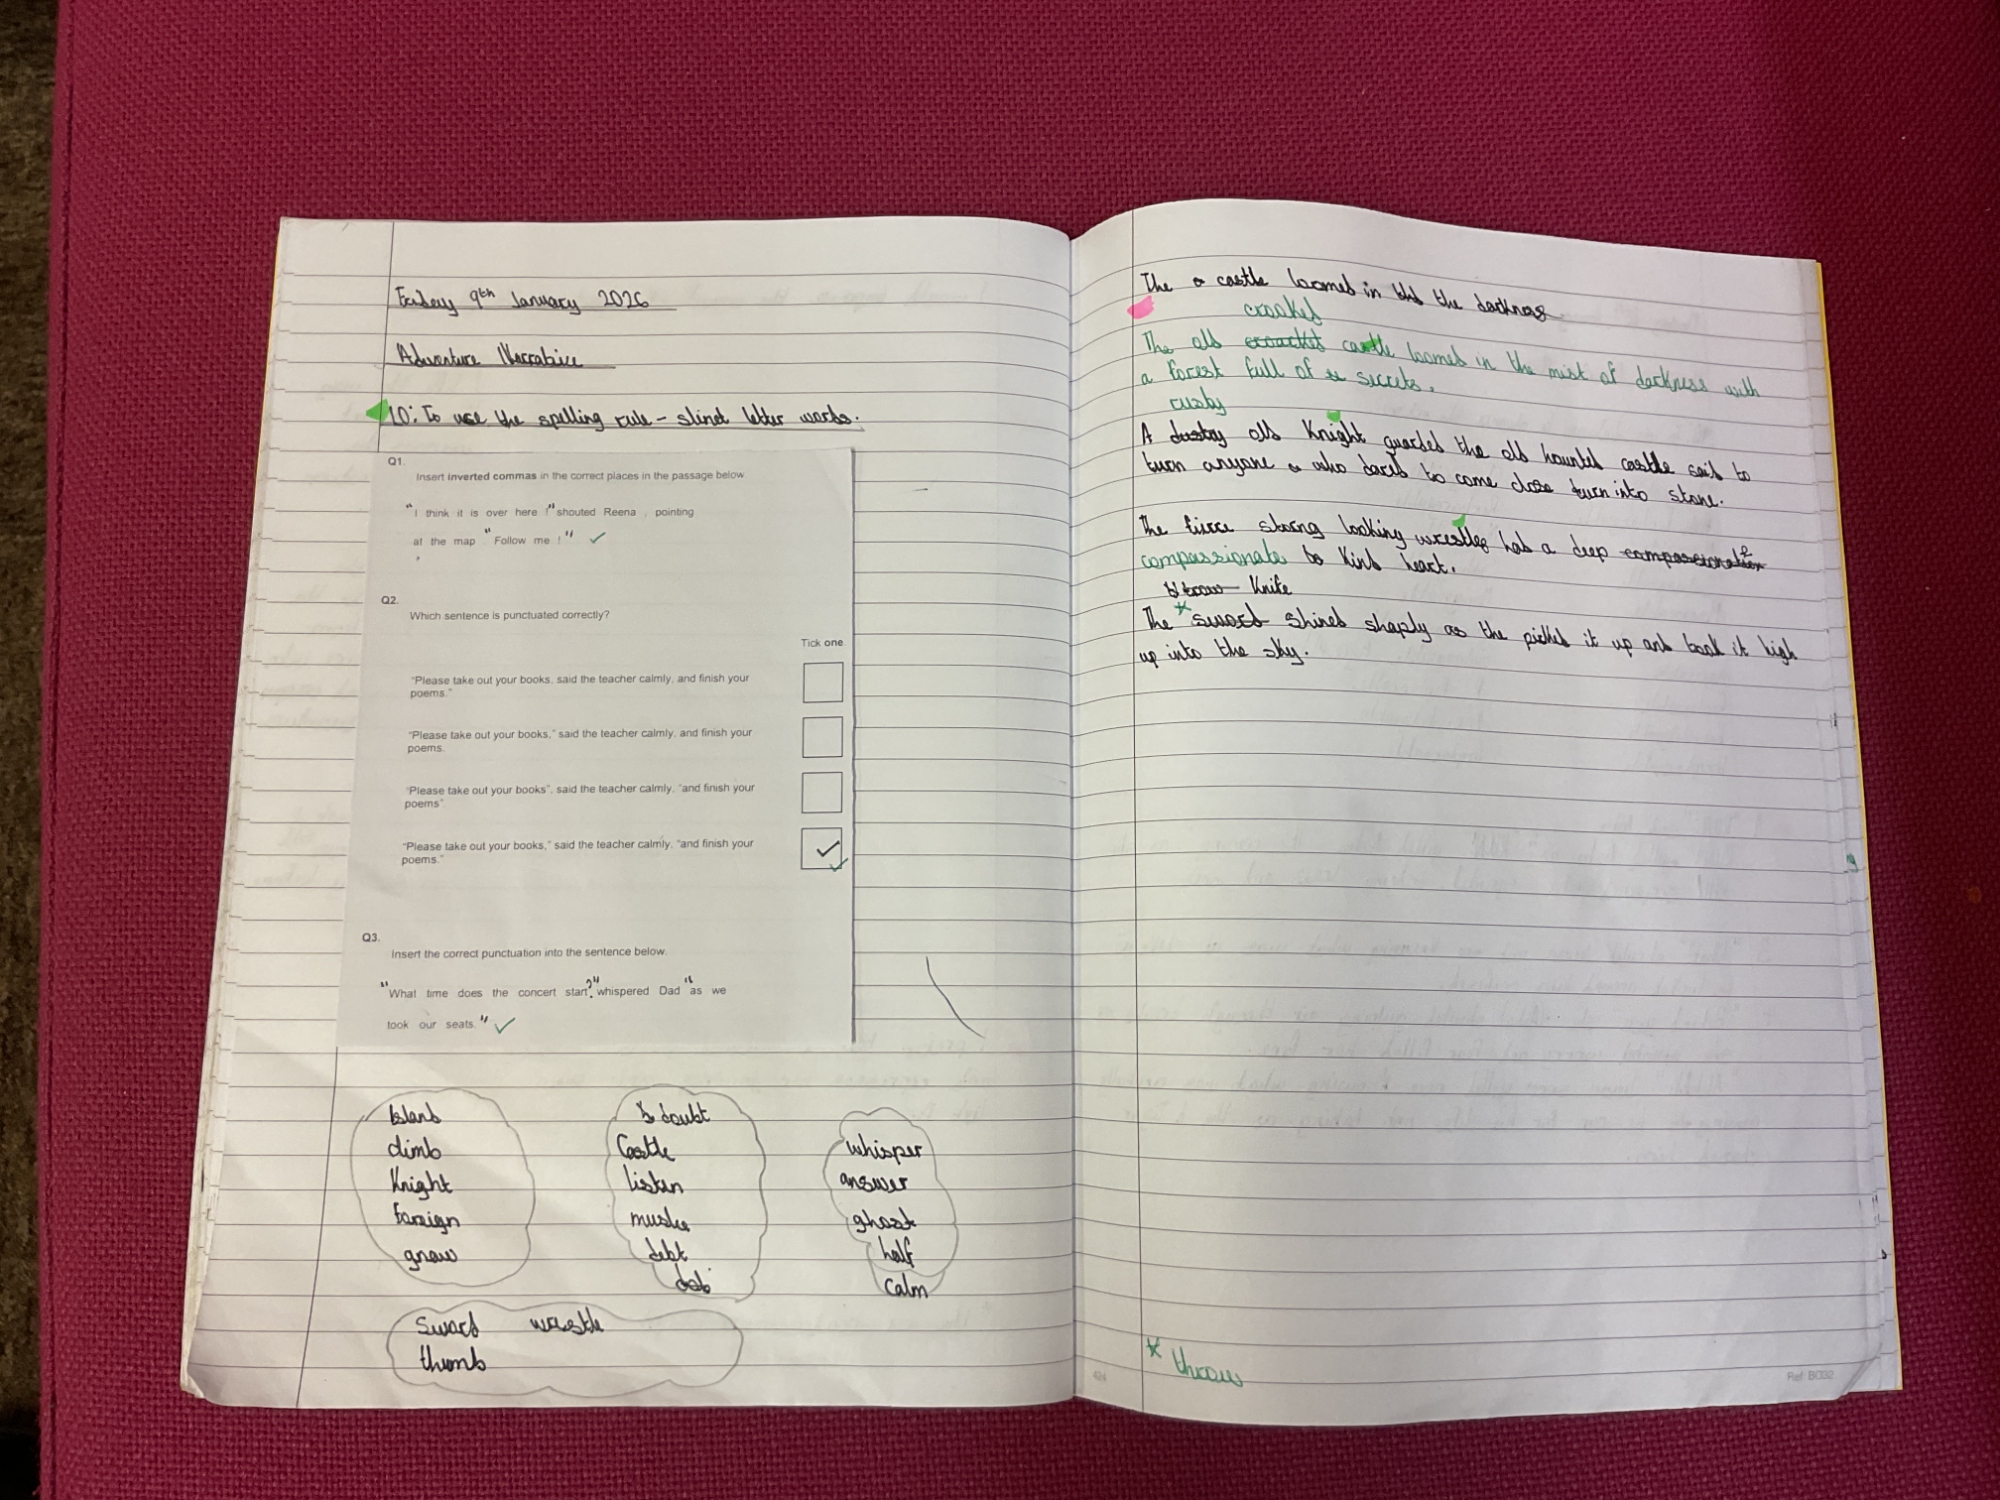 Friday 9th January 2026
Adventure Narrative
LO: To use the spelling rule - slinet letter words.
Q1.
Insert inverted commas in the correct places in the passage below
"I think it is over here !" shouted Reena , pointing
at the map "Follow me !"
Q2.
Which sentence is punctuated correctly?
Tick one
"Please take out your books, said the teacher calmly, and finish your
poems."
"Please take out your books," said the teacher calmly, and finish your
poems.
"Please take out your books", said the teacher calmly, "and finish your
poems"
"Please take out your books," said the teacher calmly, "and finish your
poems."
Q3.
Insert the correct punctuation into the sentence below.
"What time does the concert start?" whispered Dad "as we
took our seats."
Island
climb
Knight
foreign
gnaw
doubt
Castle
listen
debt
whisper
answer
ghost
half
calm
Sword wrestle
thumb
The castle loomed in the darkness
crooked
The old castle loomed in the mist of darkness with
a forest full of secrets.
rusty
A dustry old Knight guarded the old haunted castle said to
turn anyone who dared to come close turn into stone.
The fierce strong looking wrestler had a deep
compassionate to Kind heart.
throw Knife
The * sword shined shaply as the picked it up and took it high
up into the sky.
* throw
424
Ref B032